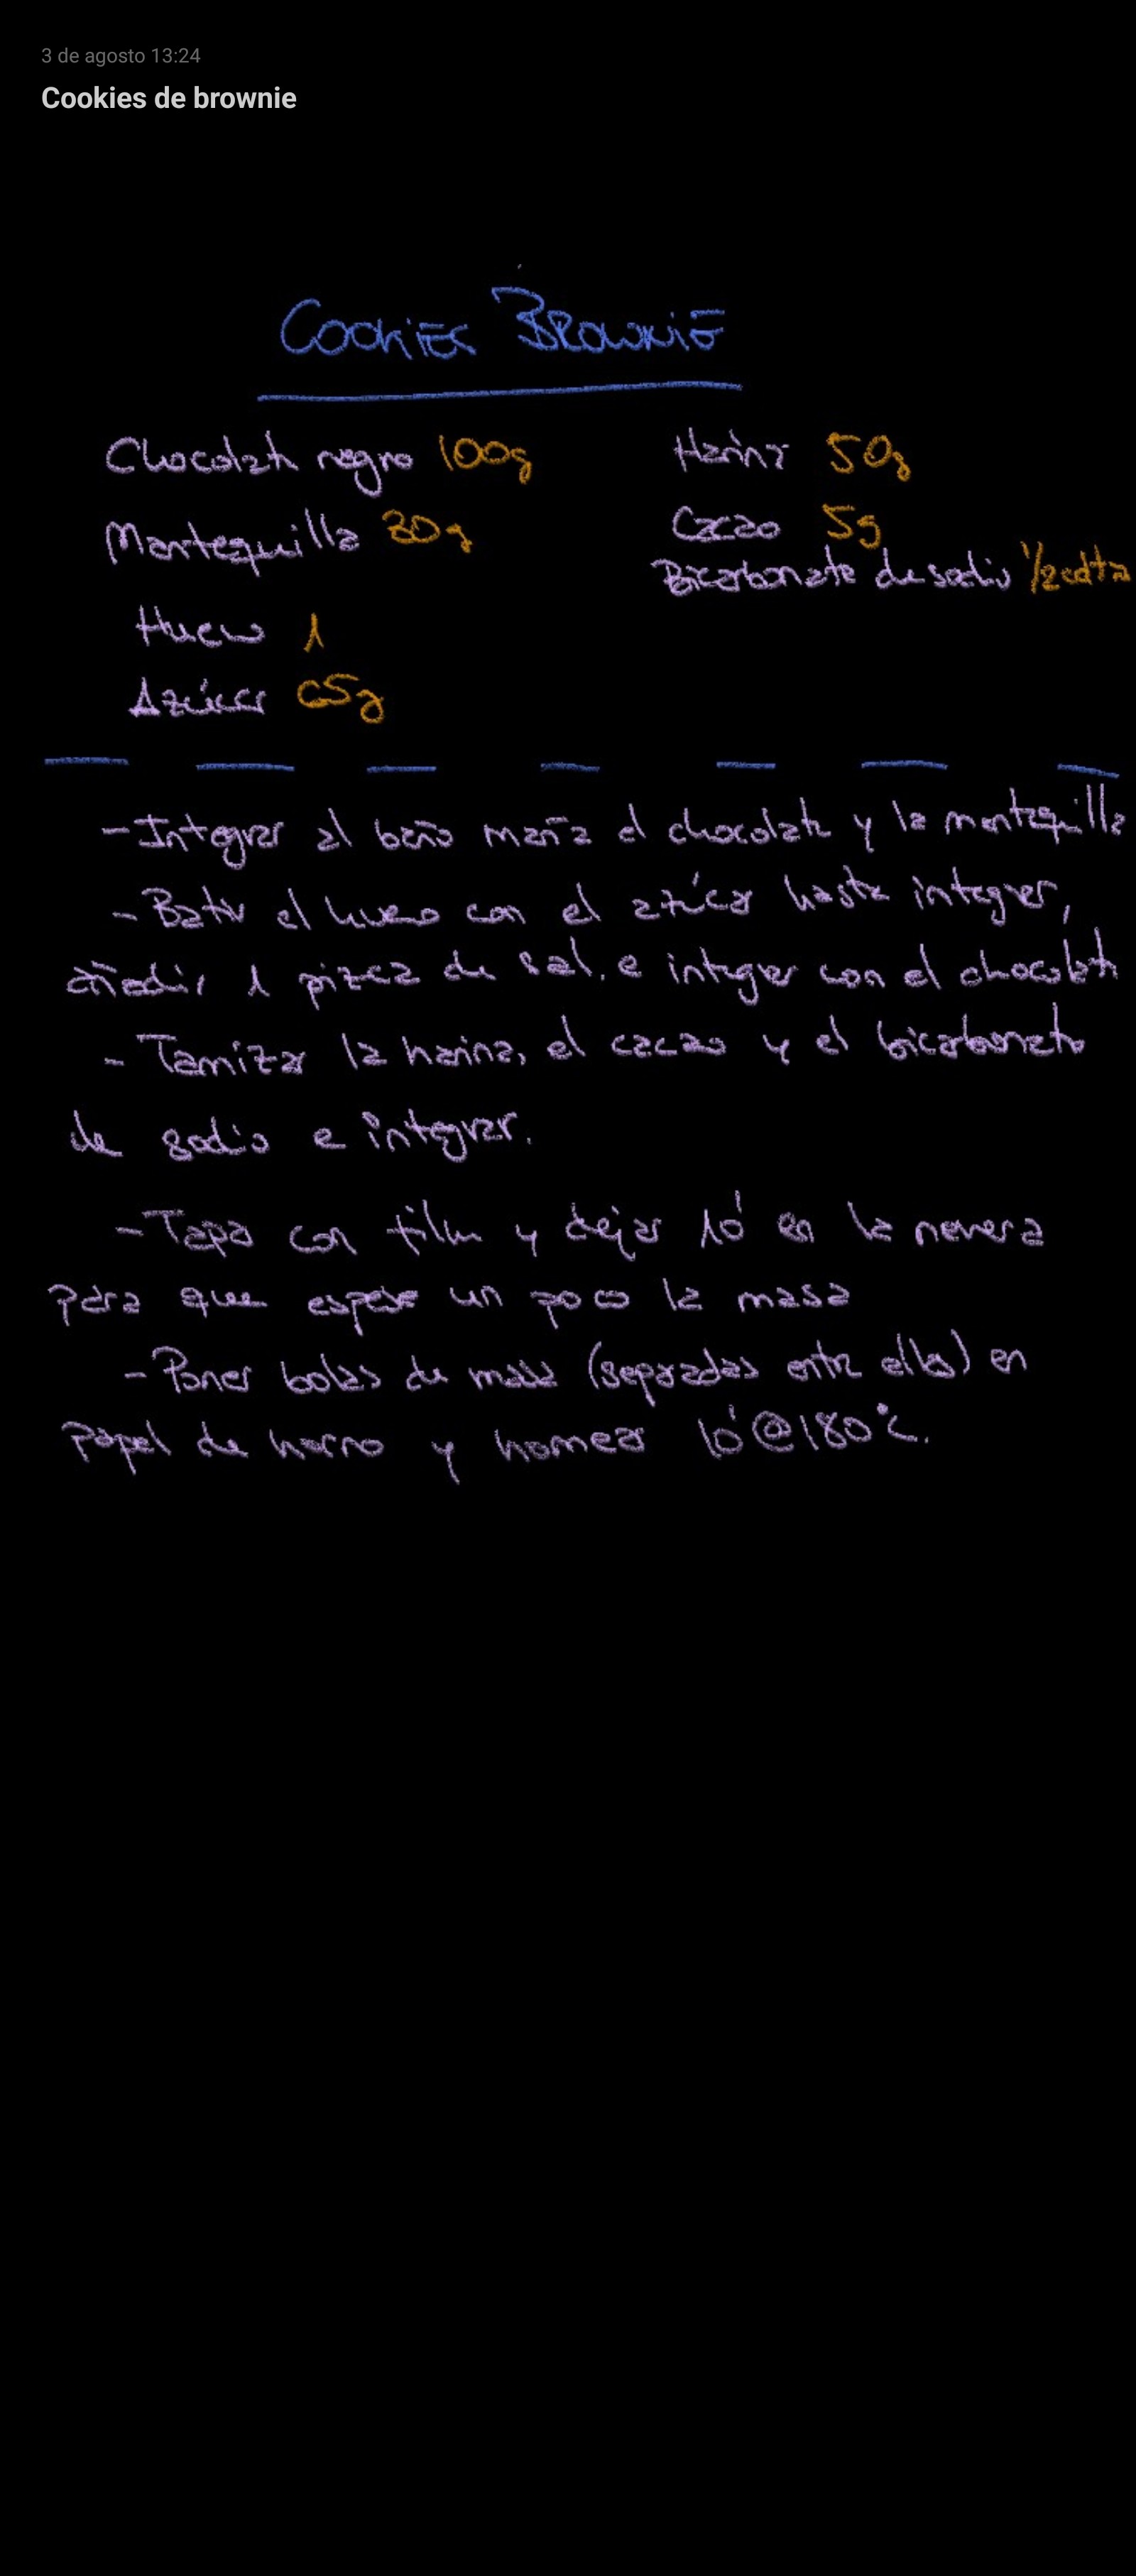 3 de agosto 13:24
Cookies de brownie
COOKIES BROWNIE
Chocolate negro 100g
Harina 50g
Mantequilla 30g
Cacao 5g
Bicarbonato de sodio 1/2 cdta
Huevo 1
Azúcar 65g
- Integrar al baño maría el chocolate y la mantequilla
- Batir el huevo con el azúcar hasta integrar,
añadir 1 pizca de sal. e integrar con el chocolate
- Tamizar la harina, el cacao y el bicarbonato
de sodio e integrar.
- Tapa con film y dejar 10' en la nevera
para que espese un poco la masa
- Poner bolas de masa (separadas entre ellas) en
papel de horno y hornear 10' @ 180°C.